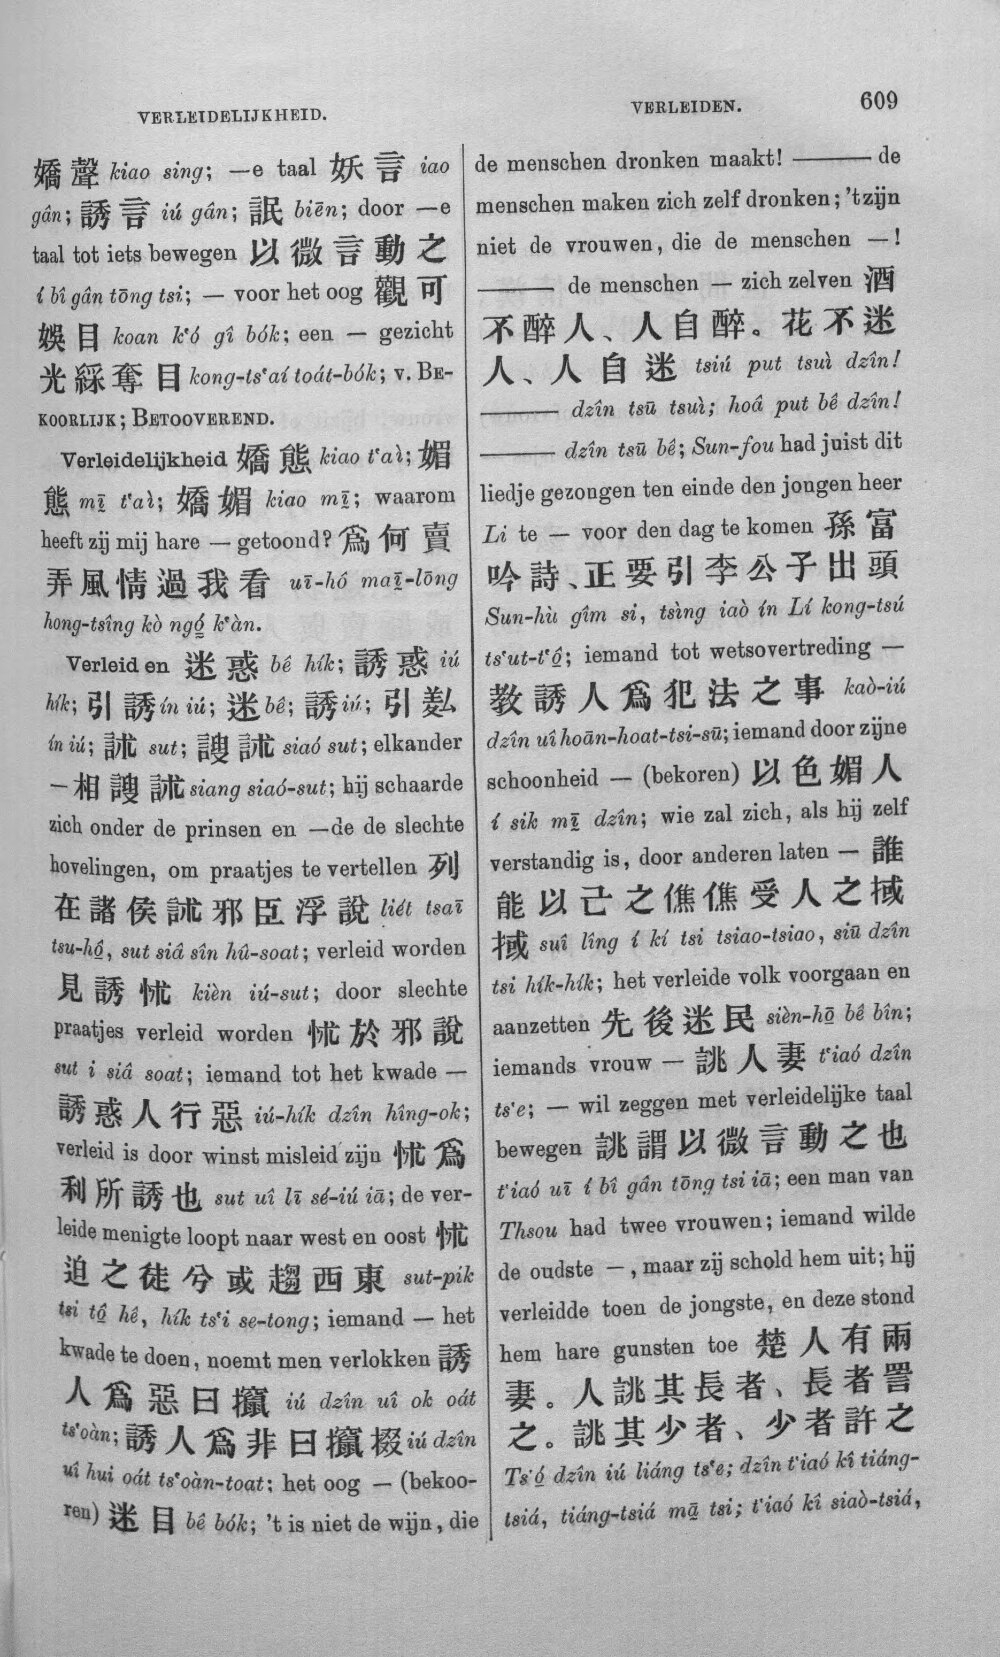 VERLEIDELIJKHEID.
VERLEIDEN.
609
嬌聲 kiao sing; —e taal 妖言 iao
gân; 誘言 iú gân; 詪 biēn; door —e
taal tot iets bewegen 以微言動之
í bî gân tōng tsi; — voor het oog 觀可
娛目 koan k‘ó gî bók; een — gezicht
光綵奪目 kong-ts‘aí toát-bók; v. BE-
KOORLIJK; BETOOVEREND.
Verleidelijkheid 嬌態 kiao t‘aì; 媚
態 mī t‘aì; 嬌媚 kiao mī; waarom
heeft zij mij hare — getoond? 爲何賣
弄風情過我看 uī-hô maī-lōng
hong-tsîng kò ngó k‘àn.
Verleiden 迷惑 bê hík; 誘惑 iú
hík; 引誘 ín iú; 迷 bê; 誘 iú; 引
ín iú; 訹 sut; 謏訹 siaó sut; elkander
— 相謏訹 siang siaó-sut; hij schaarde
zich onder de prinsen en —de de slechte
hovelingen, om praatjes te vertellen 列
在諸侯訹邪臣浮說 liét tsaī
tsu-hô, sut siâ sîn hû-soat; verleid worden
見誘怵 kièn iú-sut; door slechte
praatjes verleid worden 怵於邪說
sut i siâ soat; iemand tot het kwade —
誘惑人行惡 iú-hík dzîn hîng-ok;
verleid is door winst misleid zijn 怵爲
利所誘也 sut uî lī sé-iú iā; de ver-
leide menigte loopt naar west en oost 怵
迫之徒兮或趨西東 sut-pik
tsi tô hê, hík ts‘i se-tong; iemand — het
kwade te doen, noemt men verlokken 誘
人爲惡曰攛 iú dzîn uî ok oát
ts‘oàn; 誘人爲非曰攛掇 iú dzîn
uî hui oát ts‘oàn-toat; het oog — (bekoo-
ren) 迷目 bê bók; ’t is niet de wijn, die
de menschen dronken maakt! ——— de
menschen maken zich zelf dronken; ’t zijn
niet de vrouwen, die de menschen —!
——— de menschen — zich zelven 酒
不醉人、人自醉。花不迷
人、人自迷 tsiú put tsuì dzîn!
——— dzîn tsū tsuì; hoâ put bê dzîn!
——— dzîn tsū bê; Sun-fou had juist dit
liedje gezongen ten einde den jongen heer
Li te — voor den dag te komen 孫富
吟詩、正要引李公子出頭
Sun-hù gîm si, tsìng iaò ín Lí kong-tsú
ts‘ut-t‘ô; iemand tot wetsovertreding —
教誘人爲犯法之事 kaò-iú
dzîn uî hoān-hoat-tsi-sū; iemand door zijne
schoonheid — (bekoren) 以色媚人
í sik mī dzîn; wie zal zich, als hij zelf
verstandig is, door anderen laten — 誰
能以己之僬僬受人之掝
掝 suî lîng í kí tsi tsiao-tsiao, siū dzîn
tsi hík-hík; het verleide volk voorgaan en
aanzetten 先後迷民 sièn-hō bê bîn;
iemands vrouw — 誂人妻 t‘iaó dzîn
ts‘e; — wil zeggen met verleidelijke taal
bewegen 誂謂以微言動之也
t‘iaó uī í bî gân tōng tsi iā; een man van
Thsou had twee vrouwen; iemand wilde
de oudste —, maar zij schold hem uit; hij
verleidde toen de jongste, en deze stond
hem hare gunsten toe 楚人有兩
妻。人誂其長者、長者詈
之。誂其少者、少者許之
Ts‘ó dzîn iú liáng ts‘e; dzîn t‘iaó kî tiáng-
tsiá, tiáng-tsiá mā tsi; t‘iaó kî siaò-tsiá,